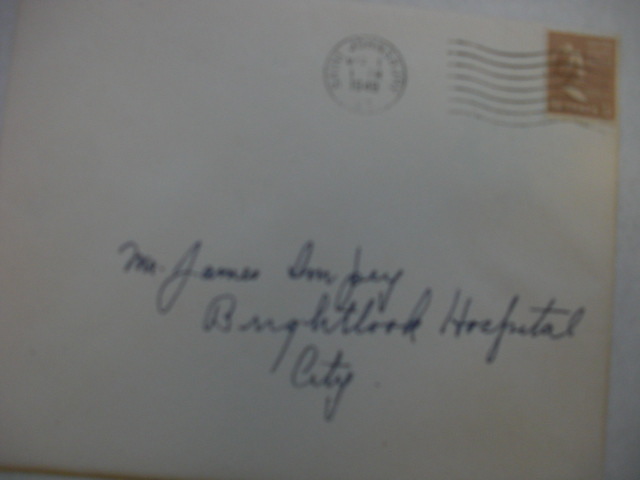 1949
Mr. James Impey
Brightlook Hospital
City.